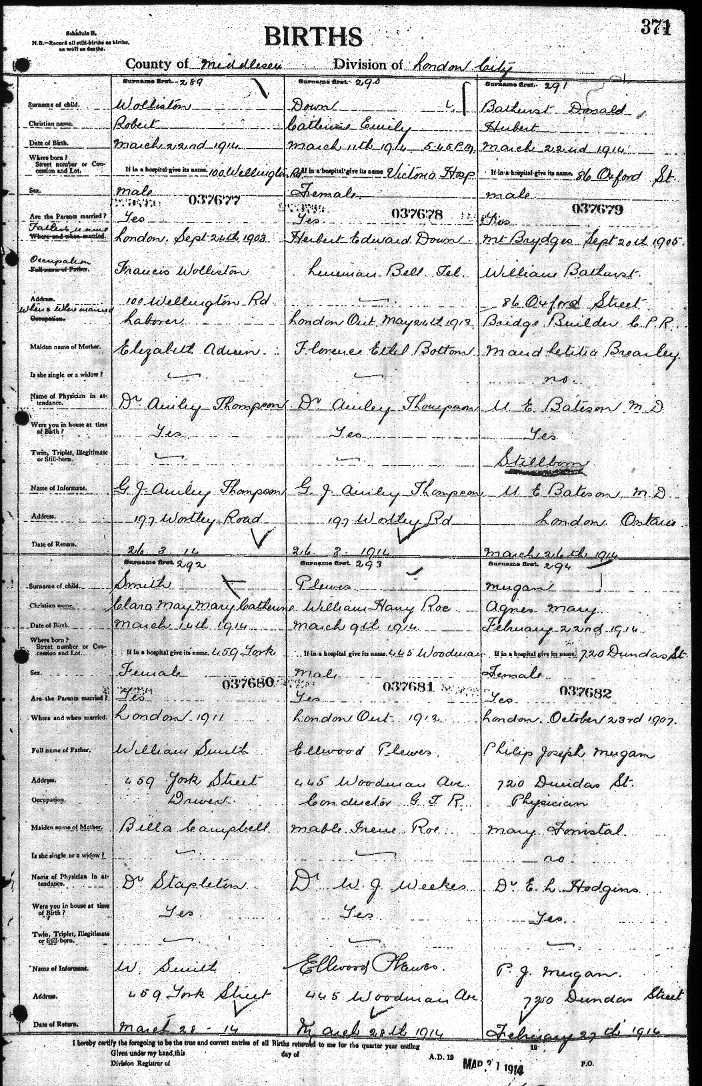 Schedule B.
N.B.—Record all still-births as births, as well as deaths.
BIRTHS
371
County of Middlesex Division of London City
Surname first. 289
Surname first. 290
Surname first. 291
Surname of child. Wolliston Down Bathurst Donald
Christian name. Robert Catherine Emily Hubert
Date of Birth. March 22nd 1914 March 11th 1914 5.45 P.M. March 22nd 1914
Where born? Street number or Concession and Lot. If in a hospital give its name. 100 Wellington Rd If in a hospital give its name. Victoria Hosp If in a hospital give its name. 86 Oxford St.
Sex. male Female male
037677 037678 037679
Are the Parents married? Yes Yes Yes
Father's name
Where and when married. London, Sept 26th 1903 Herbert Edward Down Mt Brydges Sept 20th 1905
Occupation
Full name of Father. Francis Wolliston Lineman Bell Tel. William Bathurst
Address. 100 Wellington Rd — 86 Oxford Street
Where & When married
Occupation. Laborer London Ont May 26th 1913 Bridge Builder C.P.R.
Maiden name of Mother. Elizabeth Florence Ethel Bottom Maud Letitia Brearley
Is she single or a widow? — — no.
Name of Physician in attendance. Dr Auiley Thompson Dr Auiley Thompson U E Bateson M.D
Were you in house at time of Birth? Yes Yes Yes
Twin, Triplet, Illegitimate or Still-born. — — Stillborn
Name of Informant. G. J. Auiley Thompson G. J. Auiley Thompson U E Bateson, M.D
Address. 197 Wortley Road 197 Wortley Rd London Ontario
Date of Return. 26 3 14 26 3 1914 March 26th 1914
Surname first. 292
Surname first. 293
Surname first. 294
Surname of child. Smith Plewes Mugan
Christian name. Clara May Mary Catherine William Harry Roe Agnes Mary
Date of Birth. March 14th 1914 March 9th 1914 February 22nd 1914
Where born? Street number or Concession and Lot. If in a hospital give its name. 459 York If in a hospital give its name. 445 Woodman If in a hospital give its name. 720 Dundas St
Sex. Female Male Female
037680 037681 037682
Are the Parents married? Yes Yes Yes
Where and when married. London 1911 London Ont 1912 London. October 23rd 1907.
Full name of Father. William Smith Ellwood Plewes Philip Joseph Mugan
Address. 459 York Street 445 Woodman Ave. 720 Dundas St.
Occupation. Driver Conductor G.T.R. Physician
Maiden name of Mother. Bella Campbell Mable Irene Roe Mary
Is she single or a widow? — — no
Name of Physician in attendance. Dr Stapleton Dr W. J Weekes Dr E. L. Hodgins
Were you in house at time of Birth? Yes Yes Yes.
Twin, Triplet, Illegitimate or Still-born. — — —
Name of Informant. W. Smith Ellwood Plewes P. J. Mugan.
Address. 459 York Street 445 Woodman Ave 720 Dundas Street
Date of Return. March 28 - 14 March 28th 1914 February 27th 1914
I hereby certify the foregoing to be the true and correct entries of all Births returned to me for the quarter year ending 19
Given under my hand, this day of A.D. 19 MAR 31 1914
Division Registrar of P.O.